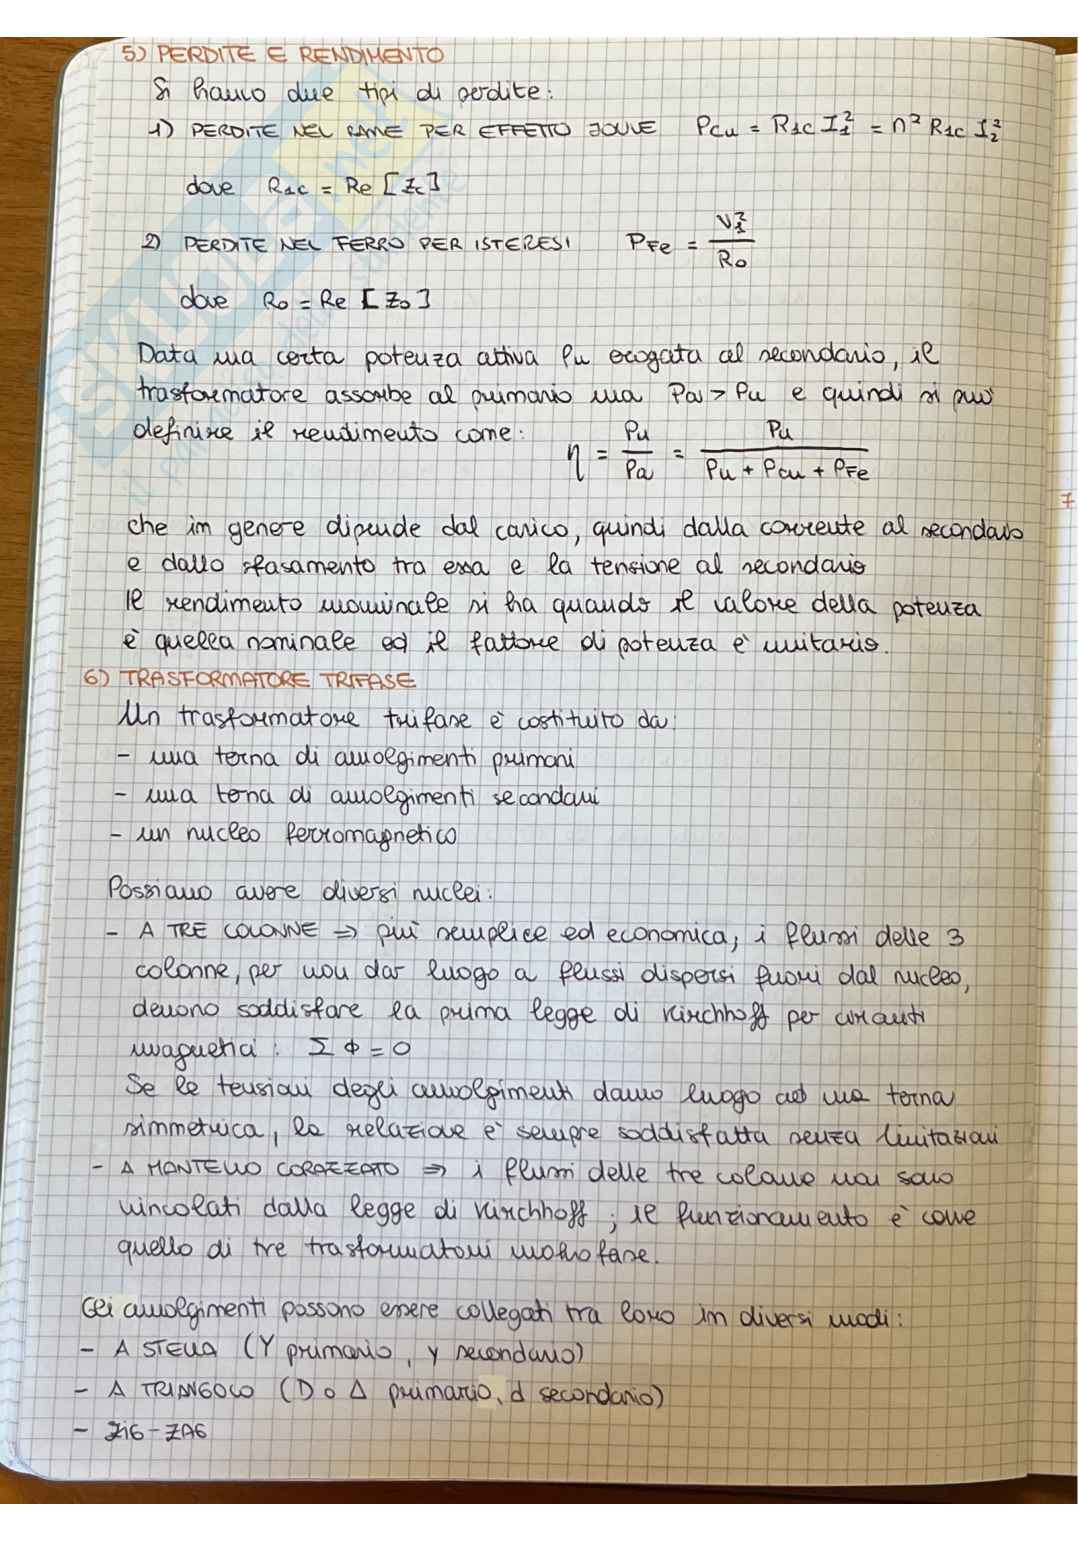 5) PERDITE E RENDIMENTO
Si hanno due tipi di perdite:
1) PERDITE NEL RAME PER EFFETTO JOULE Pcu = R1c I1² = n² R1c I2²
dove R1c = Re [Zc]
2) PERDITE NEL FERRO PER ISTERESI PFe = V1²/R0
dove R0 = Re [Z0]
Data una certa potenza attiva Pu erogata al secondario, il
trasformatore assorbe al primario una Pa > Pu e quindi si può
definire il rendimento come:
η = Pu/Pa = Pu/(Pu + Pcu + PFe)
7
che in genere dipende dal carico, quindi dalla corrente al secondario
e dallo sfasamento tra essa e la tensione al secondario
Il rendimento nominale si ha quando il valore della potenza
è quella nominale ed il fattore di potenza è unitario.
6) TRASFORMATORE TRIFASE
Un trasformatore trifase è costituito da:
- una terna di avvolgimenti primari
- una terna di avvolgimenti secondari
- un nucleo ferromagnetico
Possiamo avere diversi nuclei:
- A TRE COLONNE ⇒ più semplice ed economica; i flussi delle 3
colonne, per non dar luogo a flussi dispersi fuori dal nucleo,
devono soddisfare la prima legge di Kirchhoff per circuiti
magnetici: Σ Φ = 0
Se le tensioni degli avvolgimenti danno luogo ad una terna
simmetrica, la relazione è sempre soddisfatta senza limitazioni
- A MANTELLO CORAZZATO ⇒ i flussi delle tre colonne non sono
vincolati dalla legge di Kirchhoff; il funzionamento è come
quello di tre trasformatori monofase.
Gli avvolgimenti possono essere collegati tra loro in diversi modi:
- A STELLA (Y primario, y secondario)
- A TRIANGOLO (D o Δ primario, d secondario)
- ZIG-ZAG